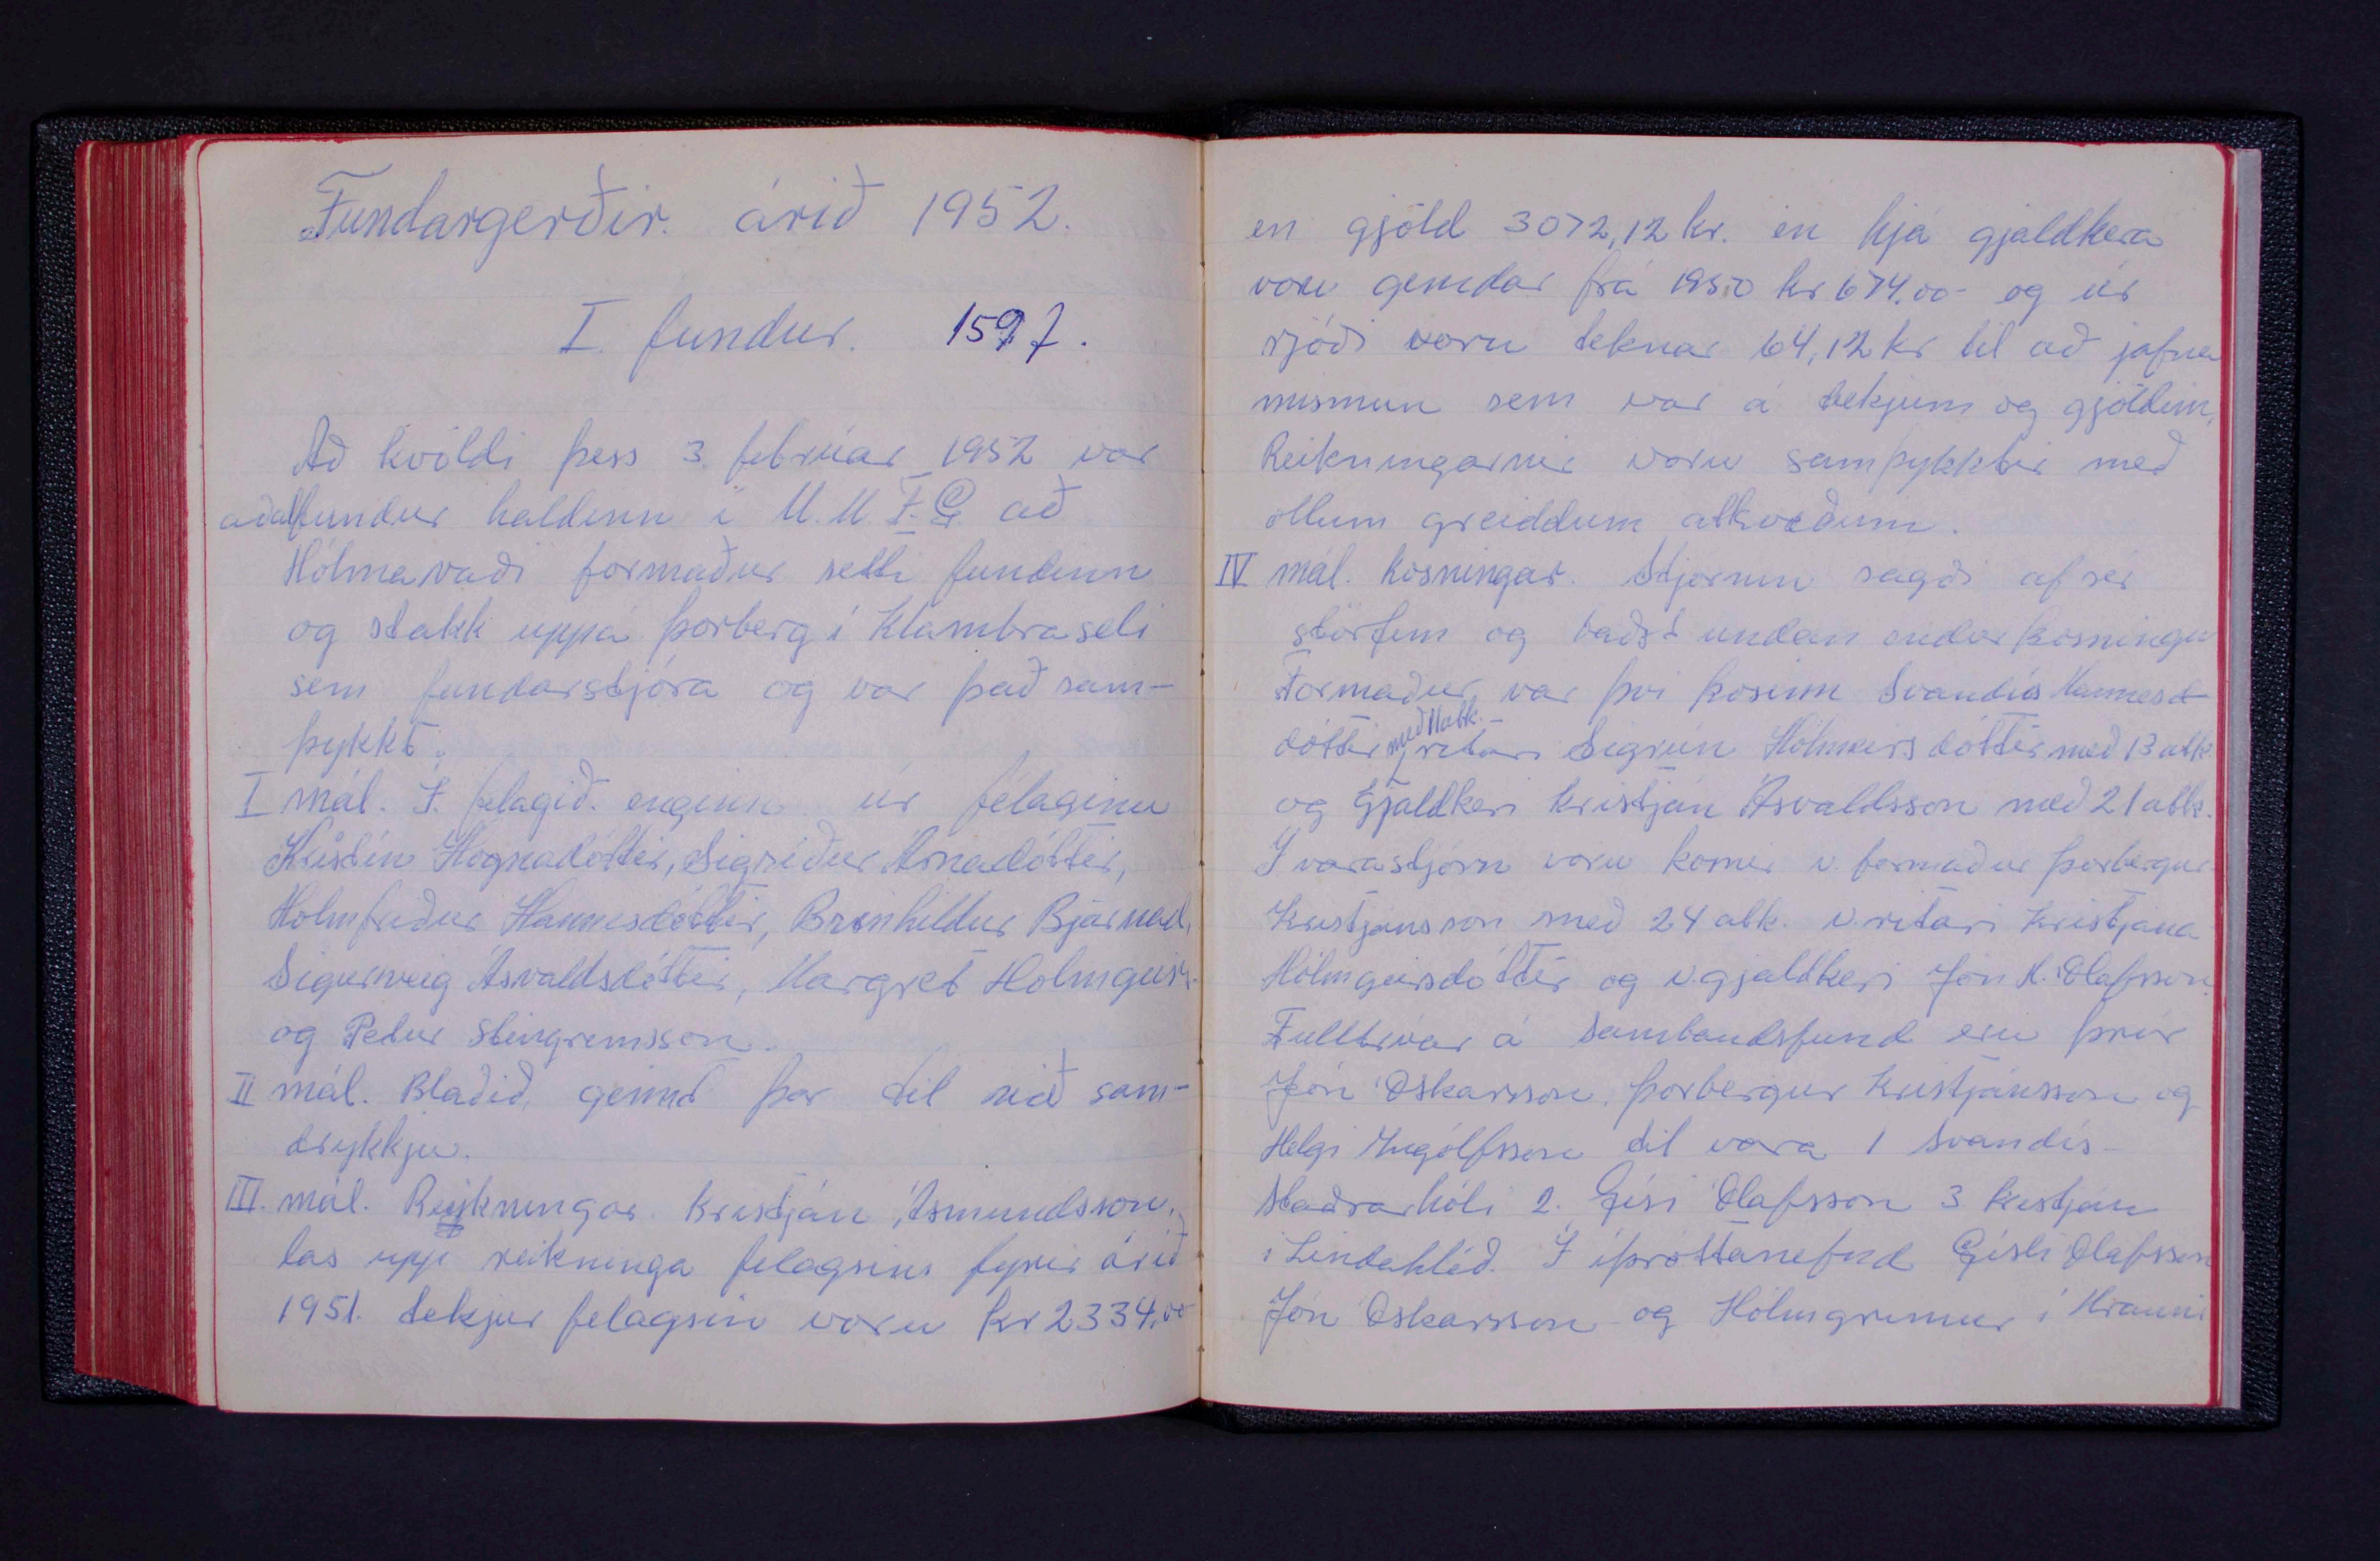 Fundargerðir. árið 1952.
I. fundur. 1597.
Að kvöldi þess 3. febrúar 1952 var
aðalfundur haldinn i U.M.F.G. að
Hólmavaði formaður setti fundinn
og stakk uppá Þorberg i Klambraseli
sem fundarstjóra og var það sam-
þykkt.
I mál. I. felagið. enginn úr félaginu
Kristin Hognadóttir, Sigriður Árnadóttir,
Holmfriður Hannesdóttir, Brinhildur Bjarnad.
Sigurveig Ásvaldsdóttir, Margret Holmgeirs-
og Petur Steingrimsson.
II mál. Blaðið, geimt þar til við sam-
drykkju.
III. mál. Reikningar. Kristján Ásmundsson.
las upp reikninga felagsins fyrir árið
1951. tekjur felagsin voru kr 2334.00
en gjöld 3072,12 kr. en hjá gjaldkera
voru gemdar frá 1950 kr 674.00- og úr
sjóði voru teknar 64,12 kr til að jafna
mismun sem var á tekjum og gjöldum.
Reikningarnir voru samþykktir með
öllum greiddum atkvæðum.
IV mál. Kosningar. Stjórnin sagði af sér
störfum og baðst undan endurkosningu
Formaður var þvi kosinn Svandís Hannesd
dóttir með 11 atk. - ritari Sigrún Hólmgeirsdóttir með 13 atk.
og Gjaldkeri Kristján Ásvaldsson með 21 atk.
I varastjórn voru kosnir v. formaður Þorbergur
Kristjánsson með 24 atk. v. ritari Kristjana
Hólmgeirsdóttir og v.gjaldkeri Jón H. Olafsson.
Fulltrúar á sambandsfund eru þrír
Jón Oskarsson. Þorbergur Kristjánsson og
Helgi Ingólfsson til vara 1 Svandís-
Staðrarhóli 2. Gísi Olafsson 3 Kristján
i Lindahlið. I iþróttanefnd Gísli Olafsson
Jón Oskarsson og Hólmgrimur i Hrauni